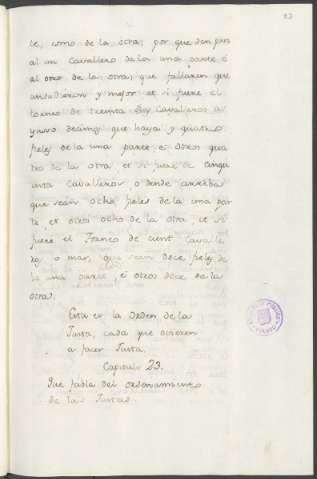 te, como de la otra; por que den pres
al un Cavallero de la una parte é
al otro de la otra, que fallaren que
andudieron y mejor et si fuere el
torneo de treinta Cavalleros
decimos que haya y quatro
fieles de la una parte é otros qua
tro de la otra, et si fuere de cinqu
enta Cavalleros, o dende arriba
que sean ocho fieles de la una par
te, et otros ocho de la otra, et si
fuere el Torneo de cient Cavalle
ros, o mas, que sean doce fieles de
la una parte, é otros doce de la
otra.
Esta es la Orden de la
Justa, cada que ovieren
a facer Justa.
Capitulo 23.
Que fabla del ordenamiento
de las Justas.